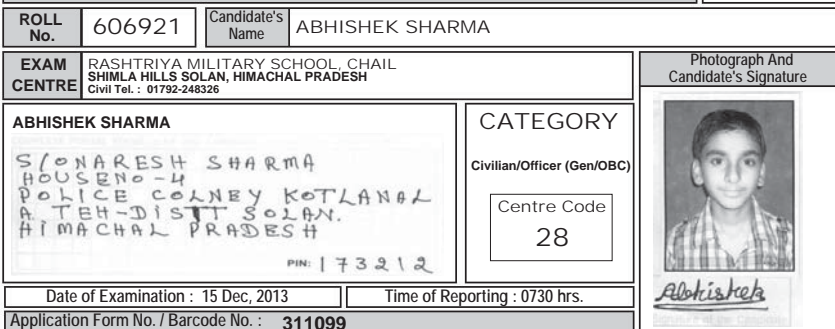 ROLL No.
606921
Candidate's Name
ABHISHEK SHARMA
EXAM CENTRE
RASHTRIYA MILITARY SCHOOL, CHAIL
SHIMLA HILLS SOLAN, HIMACHAL PRADESH
Civil Tel. : 01792-248326
Photograph And
Candidate's Signature
ABHISHEK SHARMA
S/O NARESH SHARMA
HOUSENO-4
POLICE COLNEY KOTLANAL
A TEH-DISTT SOLAN.
HIMACHAL PRADESH
PIN: 173212
CATEGORY
Civilian/Officer (Gen/OBC)
Centre Code
28
Abhishek
Date of Examination : 15 Dec, 2013
Time of Reporting : 0730 hrs.
Application Form No. / Barcode No. : 311099